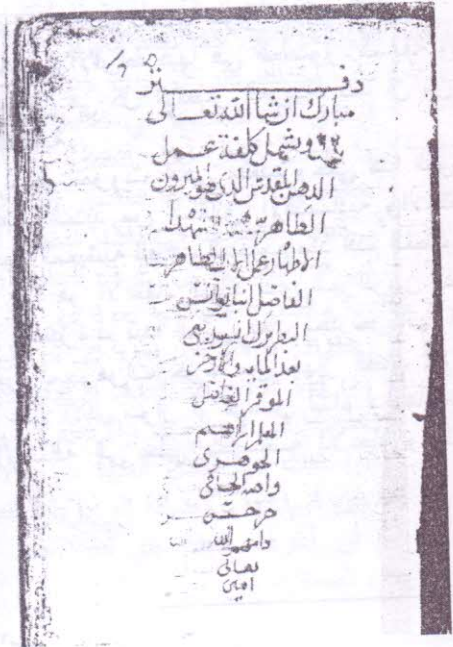 دفتر
مبارك ان شا الله تعالى
ويشمل كلفة عمل
الدهن المقدس الذى هو الميرون
الطاهر
الاطهار عمل الاب الطاهر
الفاضل انبا يوانس
البطريرك
بعد المايه والاخر
الموقر الفاضل
المعلم ابراهيم
الجوهرى
واخيه
جرجس
دامهم الله
تعالى
امين